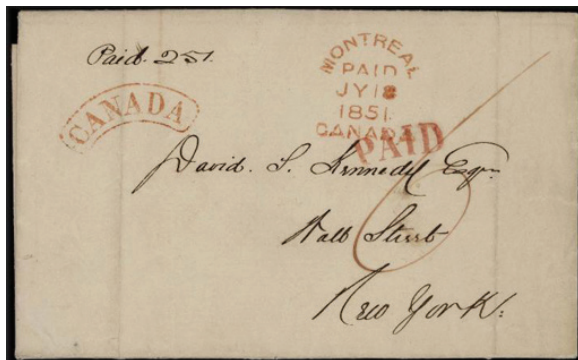 Paid. 251.
CANADA
MONTREAL
PAID
JY 18
1851.
CANADA
PAID
6
David. S. Kennedy Esqr.
Wall Street
New York.